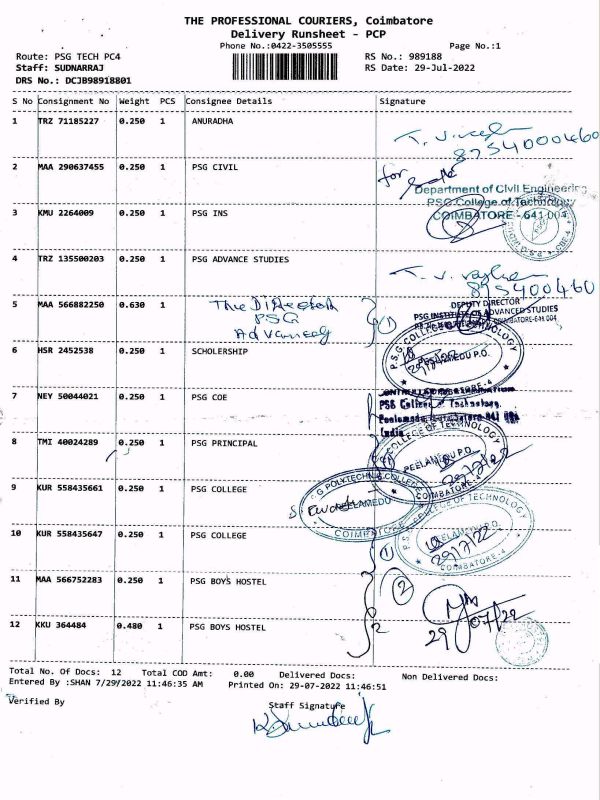 THE PROFESSIONAL COURIERS, Coimbatore
Delivery Runsheet - PCP
Phone No.:0422-3505555 Page No.:1
Route: PSG TECH PC4 RS No.: 989188
Staff: SUDNARRAJ RS Date: 29-Jul-2022
DRS No.: DCJB98918801
S No Consignment No Weight PCS Consignee Details Signature
1 TRZ 71185227 0.250 1 ANURADHA
2 MAA 290637455 0.250 1 PSG CIVIL
for
Department of Civil Engineering
PSG College of Technology
COIMBATORE - 641 004
3 KMU 2264009 0.250 1 PSG INS
4 TRZ 135500203 0.250 1 PSG ADVANCE STUDIES
5 MAA 566882250 0.630 1 The Director
PSG
DEPUTY DIRECTOR
PSG INSTITUTE OF ADVANCED STUDIES
6 HSR 2452538 0.250 1 SCHOLERSHIP
29/7/22
7 NEY 50044021 0.250 1 PSG COE
PSG College of Technology,
India
8 TMI 40024289 0.250 1 PSG PRINCIPAL
COLLEGE OF TECHNOLOGY
PEELAMEDU P.O.
COIMBATORE-4
29/7/22
9 KUR 558435661 0.250 1 PSG COLLEGE
10 KUR 558435647 0.250 1 PSG COLLEGE
P.S.G. COLLEGE OF TECHNOLOGY
PEELAMEDU P.O.
COIMBATORE-4
29/7/22
11 MAA 566752283 0.250 1 PSG BOYS HOSTEL
2
12 KKU 364484 0.480 1 PSG BOYS HOSTEL
2
29/07/22
Total No. Of Docs: 12 Total COD Amt: 0.00 Delivered Docs: Non Delivered Docs:
Entered By :SHAN 7/29/2022 11:46:35 AM Printed On: 29-07-2022 11:46:51
Verified By Staff Signature